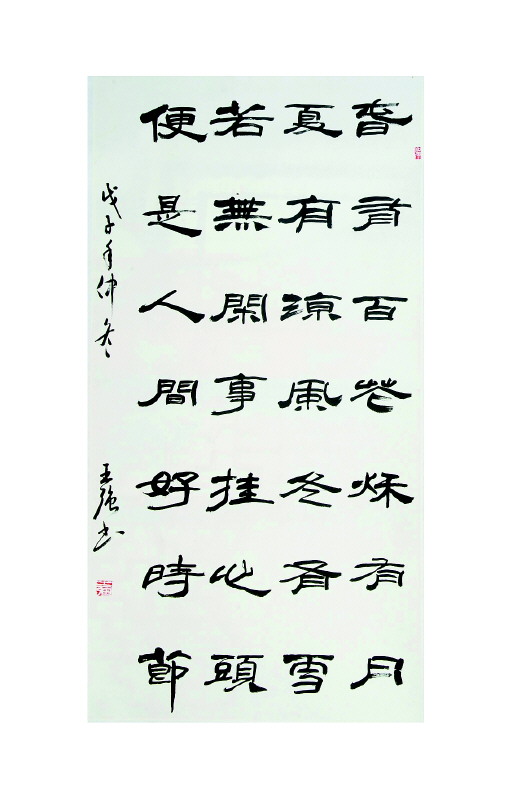 春有百花秋有月
夏有涼風冬有雪
若無閑事挂心頭
便是人間好時節
戊子年仲冬
王强书